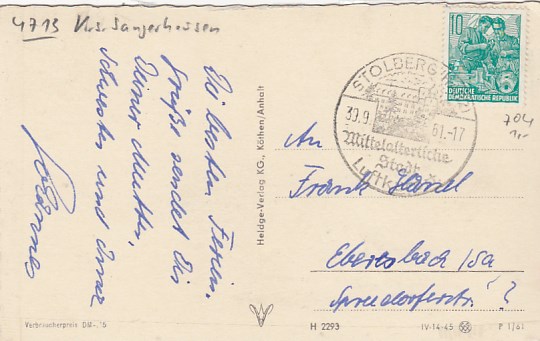 4713 Krs. Sangerhausen
Die besten Ferien-
grüße sendet Dir
Deiner Mutter,
Schwester und Oma
Hannes
Heldge-Verlag KG., Köthen/Anhalt
10
DEUTSCHE
DEMOKRATISCHE REPUBLIK
STOLBERG
30.9. 61.-17
Mittelalterliche
Stadt
Luftk
704
An
Frank Händl
Ebersbach / Sa
Spreedorferstr. ?
Verbraucherpreis DM -,15
H 2293
IV-14-45
P 1/61